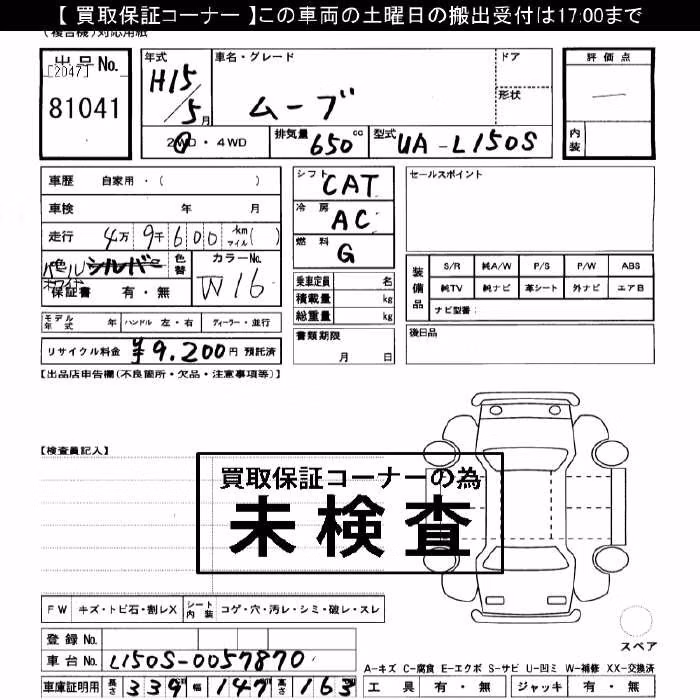 【 買取保証コーナー 】この車両の土曜日の搬出受付は17:00まで
(複合機)対応用紙
出品No.
[2047]
81041
年式
H15/5月
車名・グレード
ムーブ
ドア
形状
評価点
—
内装
2WD・4WD
排気量 650 cc
型式 UA-L150S
車歴 自家用・( )
車検 年 月
走行 4万 9千 6 0 0 km マイル ( )
色 シルバー パールホワイト
色替
カラーNo.
W16
保証書 有・無
シフト CAT
冷房 AC
燃料 G
乗車定員 名
積載量 kg
総重量 kg
書類期限
月 日
セールスポイント
装備品
S/R 純A/W P/S P/W ABS
純TV 純ナビ 革シート 外ナビ エアB
ナビ型番:
後日品
モデル年式 年 ハンドル 左・右 ディーラー・並行
リサイクル料金 ¥9.200円 預託済
【出品店申告欄(不良箇所・欠品・注意事項等)】
【検査員記入】
買取保証コーナーの為
未検査
FW キズ・トビ石・割レX シート内装 コゲ・穴・汚レ・シミ・破レ・スレ
登録No.
車台No. L150S-0057870
車庫証明用 長さ 339 幅 147 高さ 163
スペア
A-キズ C-腐食 E-エクボ S-サビ U-凹ミ W-補修 XX-交換済
工具 有・無 ジャッキ 有・無